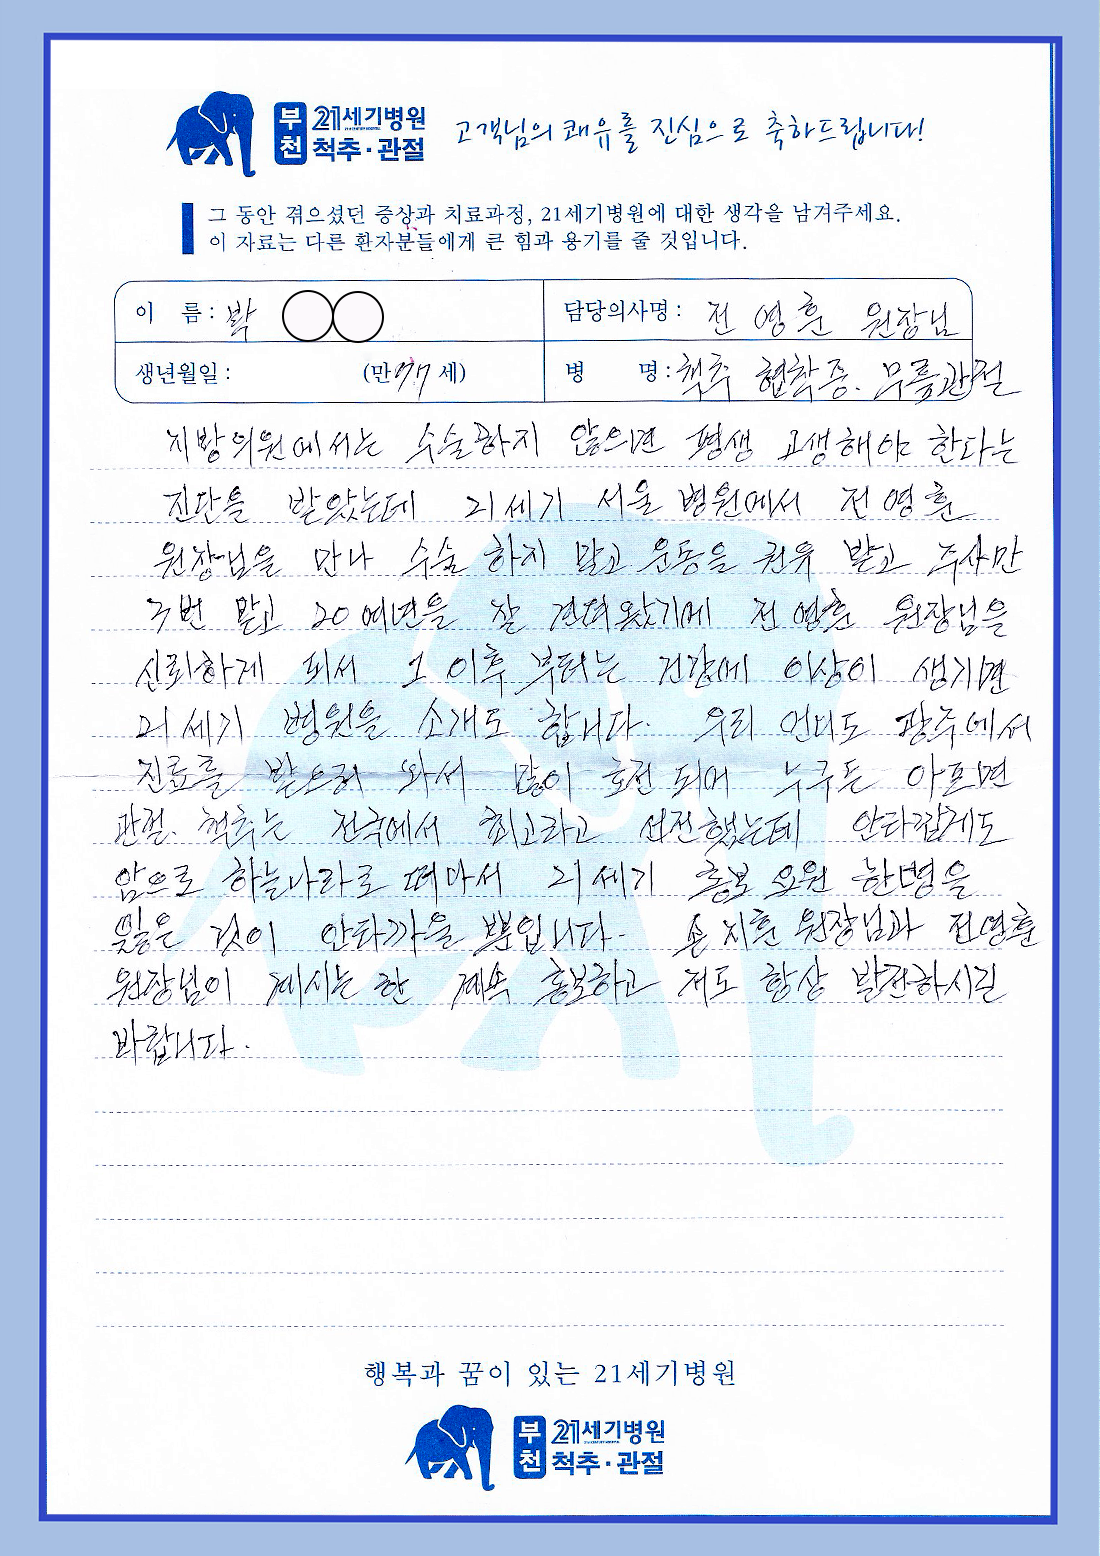 부천 21세기병원 척추·관절
고객님의 쾌유를 진심으로 축하드립니다!
그 동안 겪으셨던 증상과 치료과정, 21세기병원에 대한 생각을 남겨주세요.
이 자료는 다른 환자분들에게 큰 힘과 용기를 줄 것입니다.
이 름 : 박
담당의사명 : 전영훈 원장님
생년월일 : (만 77 세)
병 명 : 척추 협착증. 무릎관절
지방의원에서는 수술하지 않으면 평생 고생해야 한다는
진단을 받았는데 21세기 서울 병원에서 전영훈
원장님을 만나 수술 하지 말고 운동을 권유 받고 주사만
맞고 20여년을 잘 견뎌왔기에 전영훈 원장님을
신뢰하게 되서 그 이후 부터는 건강에 이상이 생기면
21세기 병원을 소개도 합니다. 우리 언니도 광주에서
진료를 받으러 와서 많이 호전 되어 누구든 아프면
관절. 척추는 전국에서 최고라고 선전했는데 안타깝게도
앞으로 하늘나라로 떠나서 21세기 홍보 요원 한명을
잃은 것이 안타까울 뿐입니다. 손지훈 원장님과 전영훈
원장님이 계시는 한 계속 홍보하고 저도 항상 발전하시길
바랍니다.
행복과 꿈이 있는 21세기병원
부천 21세기병원 척추·관절